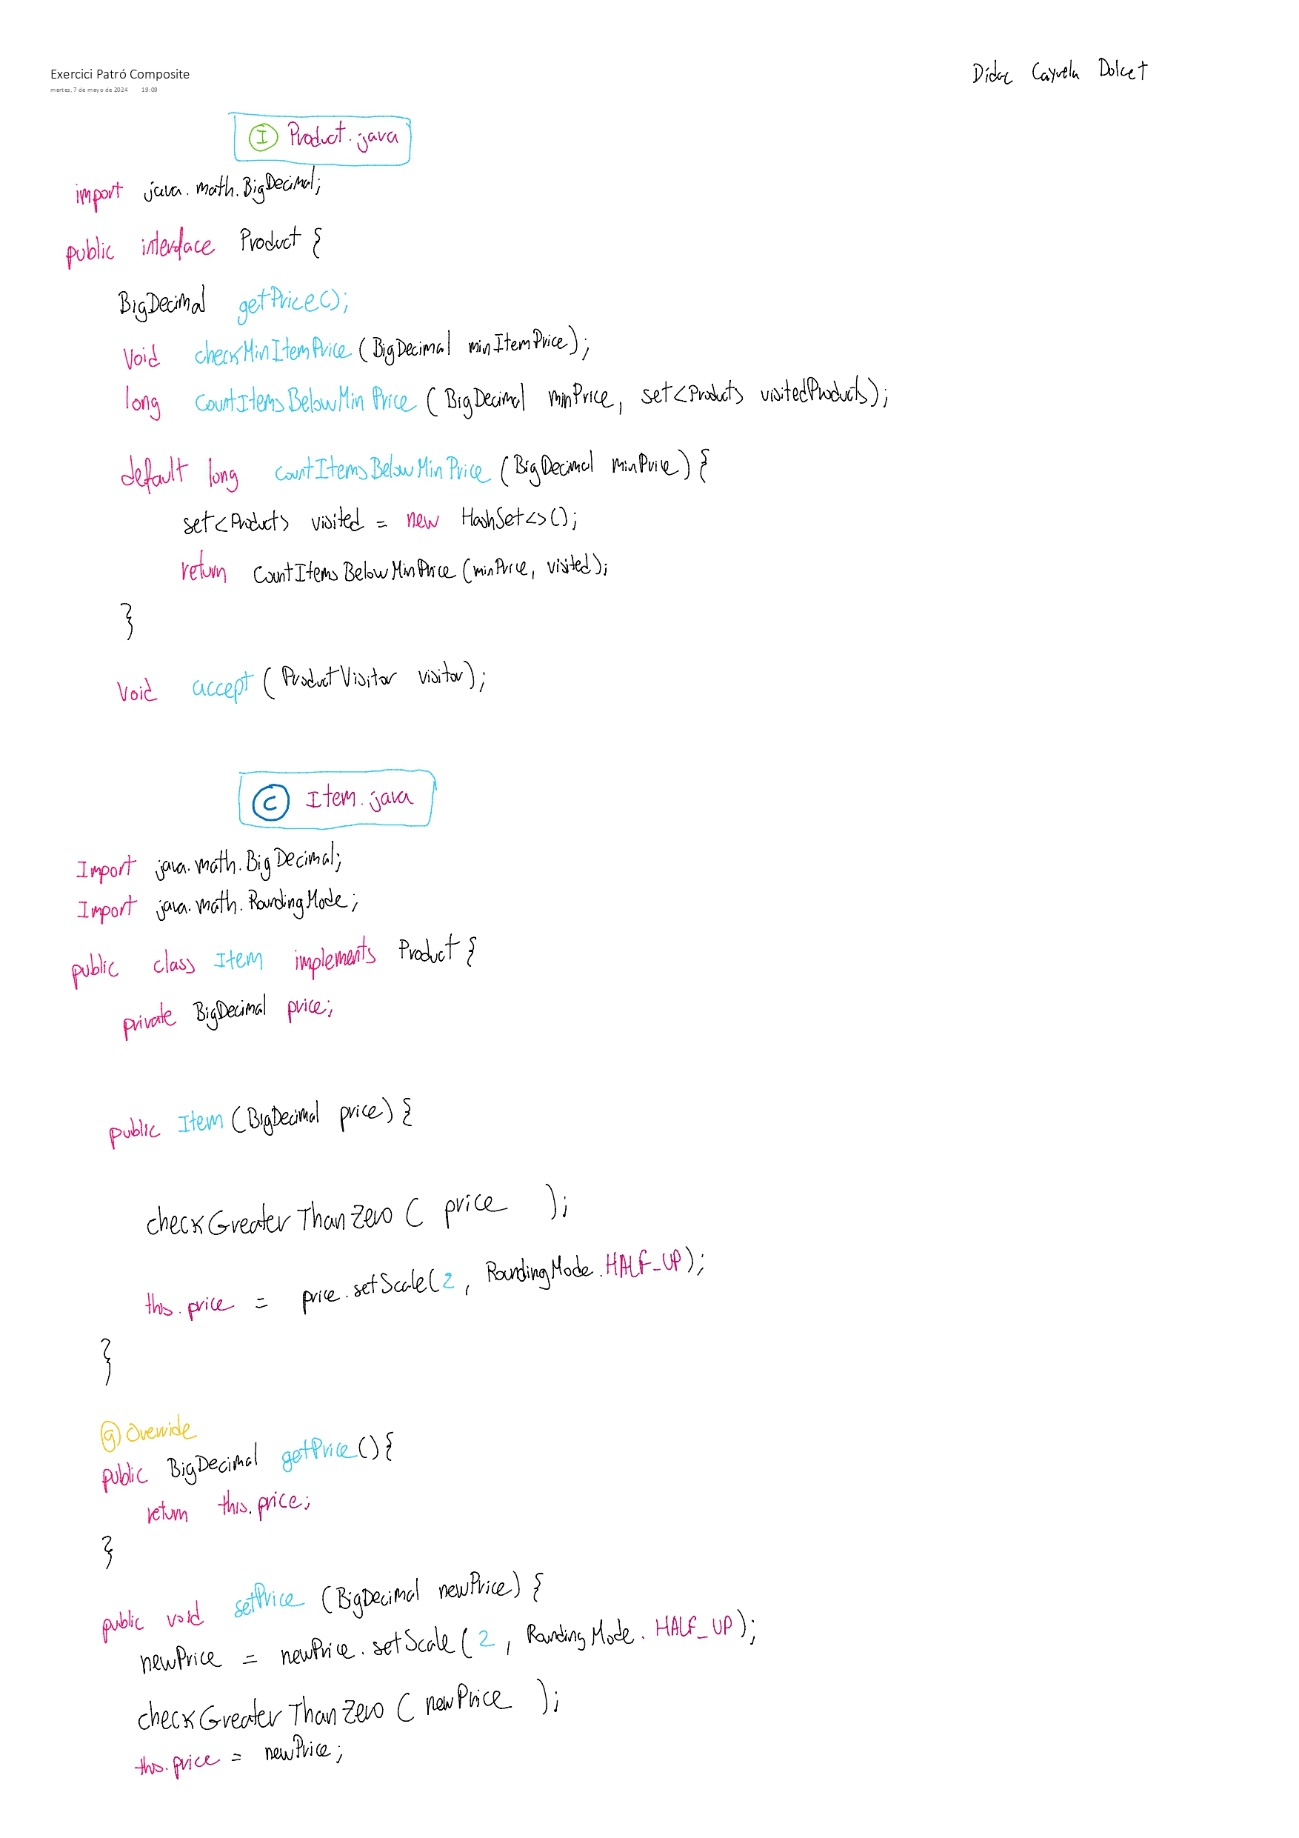 Exercici Patró Composite
martes, 7 de mayo de 2024 19:09
Dídac Cayuela Dolcet
I Product.java
import java.math.BigDecimal;
public interface Product {
BigDecimal getPrice();
Void checkMinItemPrice (BigDecimal minItemPrice);
long CountItemsBelowMinPrice (BigDecimal minPrice, set<Product> visitedProducts);
default long countItemsBelowMinPrice (BigDecimal minPrice) {
set<Product> visited = new HashSet<>();
return CountItemsBelowMinPrice (minPrice, visited);
}
Void accept (ProductVisitor visitor);
C Item.java
Import java.math.BigDecimal;
Import java.math.RoundingMode;
public class Item implements Product {
private BigDecimal price;
public Item (BigDecimal price) {
checkGreaterThanZero ( price );
this.price = price.setScale(2, RoundingMode.HALF_UP);
}
@Override
public BigDecimal getPrice() {
return this.price;
}
public void setPrice (BigDecimal newPrice) {
newPrice = newPrice.setScale (2, RoundingMode.HALF_UP);
checkGreaterThanZero ( newPrice );
this.price = newPrice;